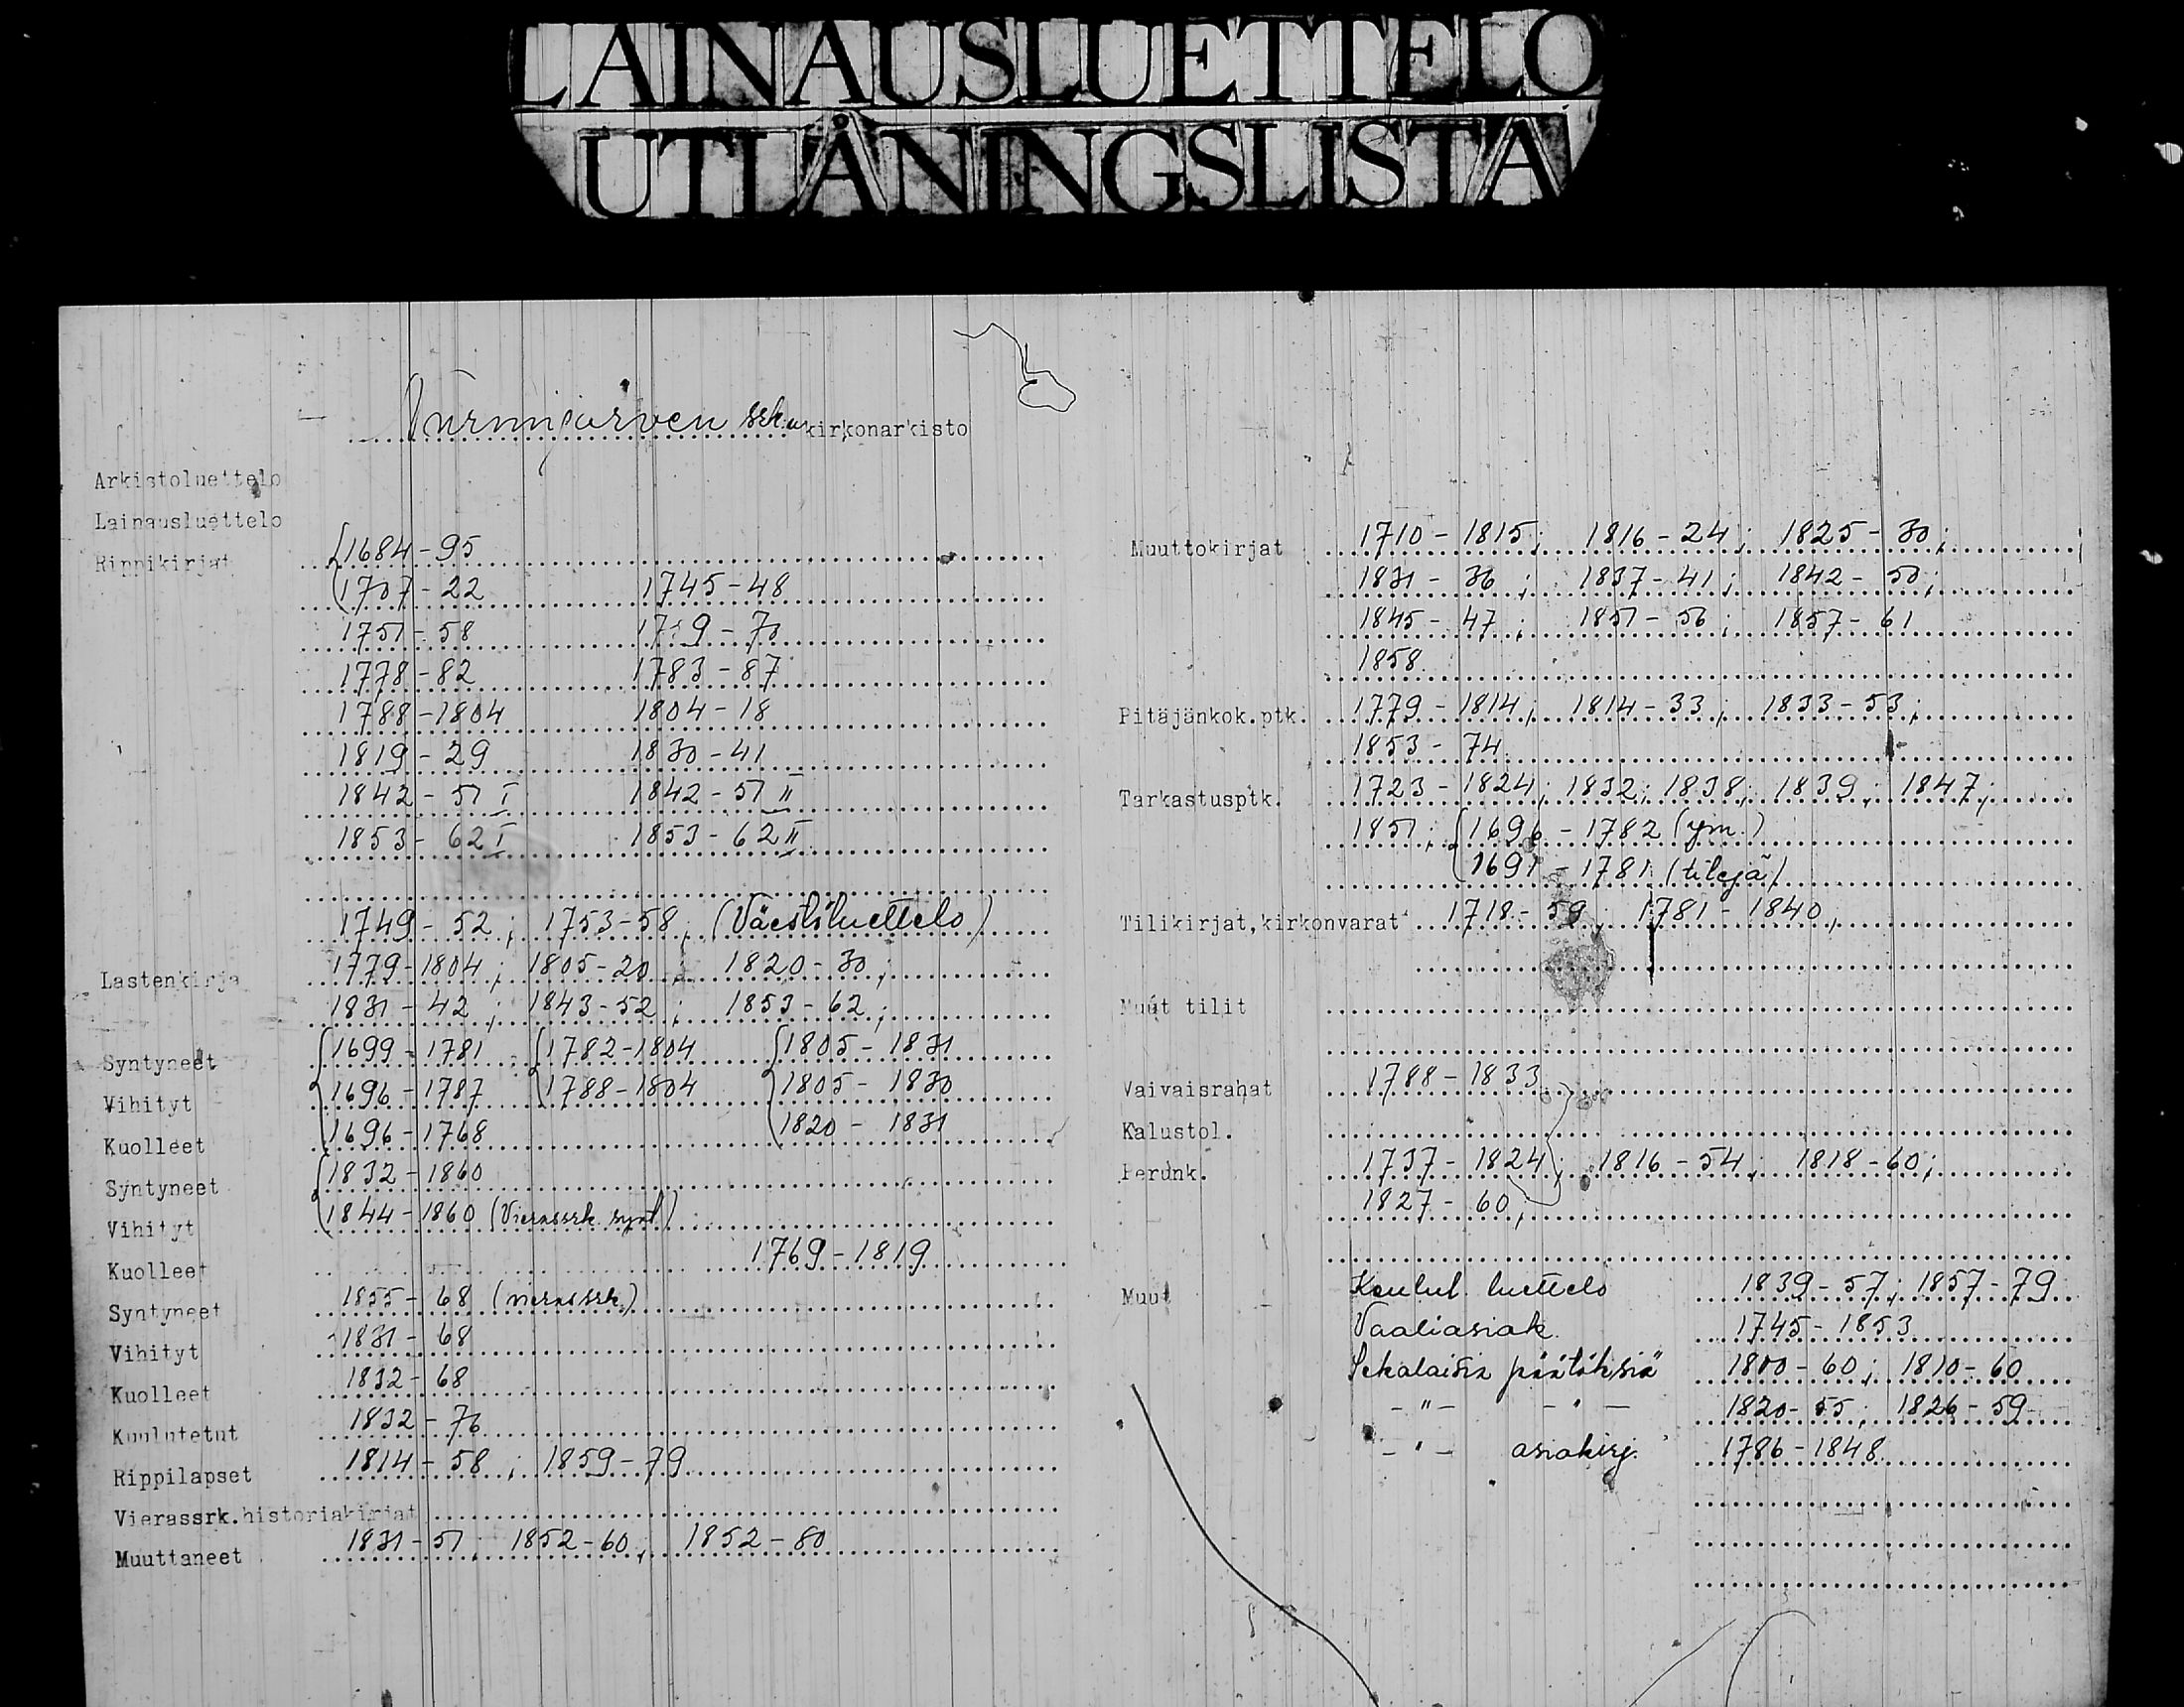 LAINAUSLUETTELO
UTLÅNINGSLISTA
Nurmijärven srk:n kirkonarkisto
Arkistoluettelo
Lainausluettelo
Rippikirjat 1684-95
1707-22 1745-48
1751-58 1759-70
1778-82 1783-87
1788-1804 1804-18
1819-29 1830-41
1842-51 I 1842-51 II
1853-62 I 1853-62 II
1749-52; 1753-58; (Väestöluettelo)
Lastenkirja 1779-1804; 1805-20; 1820-30;
1831-42; 1843-52; 1853-62;
Syntyneet 1699-1781 1782-1804 1805-1831
Vihityt 1696-1787 1788-1804 1805-1830
Kuolleet 1696-1768 1820-1831
Syntyneet 1832-1860
Vihityt 1844-1860 (Vierassrk. synt)
Kuolleet 1769-1819
Syntyneet 1855-68 (vierassrk.)
Vihityt 1831-68
Kuolleet 1832-68
Kuulutetut 1832-76
Rippilapset 1814-58; 1859-79
Vierassrk.historiakirjat
Muuttaneet 1831-51, 1852-60, 1852-80
Muuttokirjat 1710-1815; 1816-24; 1825-30;
1831-36; 1837-41; 1842-50;
1845-47; 1851-56; 1857-61
1858.
Pitäjänkok.ptk. 1779-1814; 1814-33; 1833-53;
1853-74.
Tarkastusptk. 1723-1824; 1832; 1838; 1839; 1847;
1851; 1696-1782 (ym.)
1691-1781 (tilejä)
Tilikirjat,kirkonvarat 1718-59; 1781-1840,
Muut tilit
Vaivaisrahat 1788-1833
Kalustol.
Perunk. 1737-1824; 1816-54; 1818-60;
1827-60;
Muut Kuulut. luettelo 1839-57; 1857-79
Vaaliasiak. 1745-1853
Sekalaisia päätöksiä 1800-60; 1810-60
-"- -"- 1820-55; 1826-59
-"- asiakirj. 1786-1848